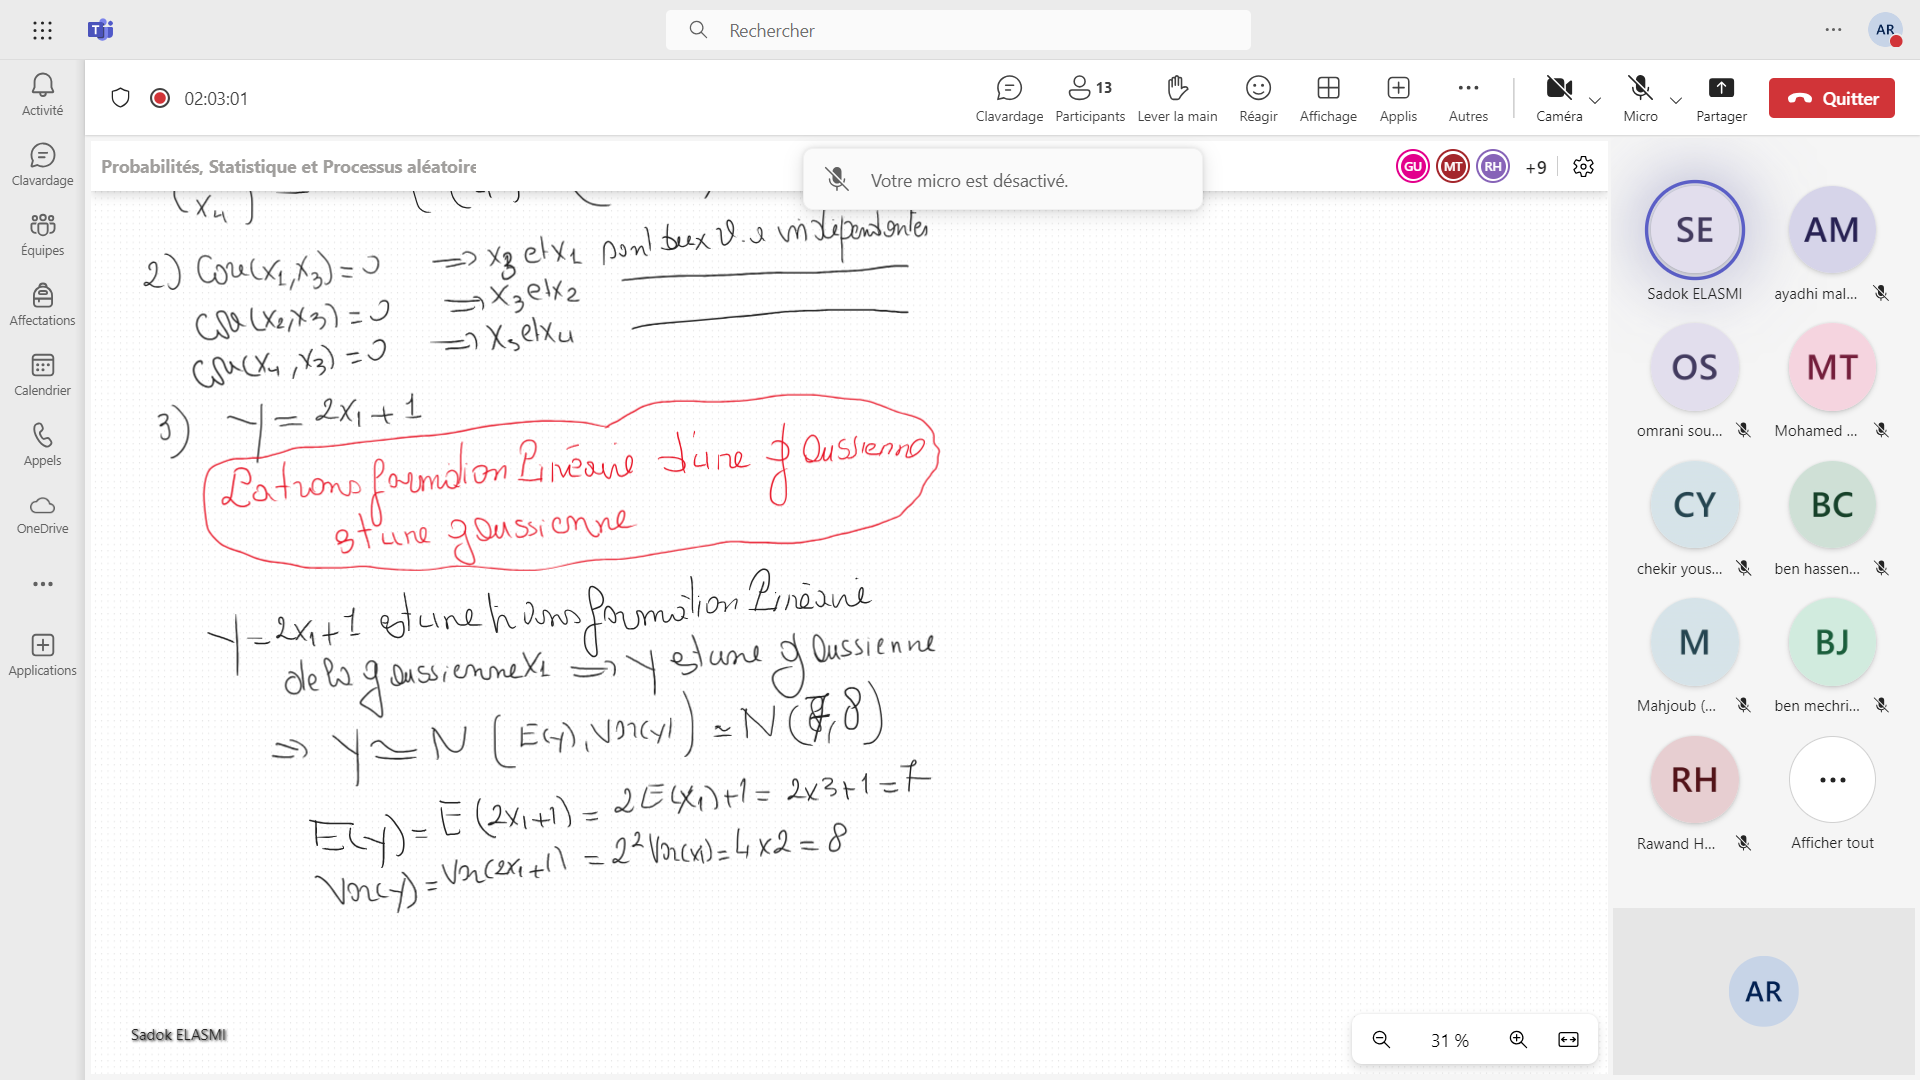 Rechercher
AR
Activité
Clavardage
Équipes
Affectations
Calendrier
Appels
OneDrive
Applications
02:03:01
Clavardage
13
Participants
Lever la main
Réagir
Affichage
Applis
Autres
Caméra
Micro
Partager
Quitter
Probabilités, Statistique et Processus aléatoire
Votre micro est désactivé.
GU MT RH +9
(x4)
2) Cov(x1,x3)=0 => x3 et x1 sont deux v.a indépendantes
Cov(x2,x3)=0 => x3 et x2
Cov(x4,x3)=0 => x3 et x4
3) Y = 2x1+1
La transformation Linéaire d'une gaussienne
est une gaussienne
Y=2x1+1 est une transformation Linéaire
de la gaussienne x1 => Y est une gaussienne
=> Y ≃ N (E(y), Var(y)) ≃ N(7,8)
E(y)= E(2x1+1)= 2E(x1)+1= 2x3+1=7
Var(y)= Var(2x1+1) = 2² Var(x1)=4x2=8
Sadok ELASMI
31 %
SE
Sadok ELASMI
AM
ayadhi mal...
OS
omrani sou...
MT
Mohamed ...
CY
chekir yous...
BC
ben hassen...
M
Mahjoub (...
BJ
ben mechri...
RH
Rawand H...
Afficher tout
AR